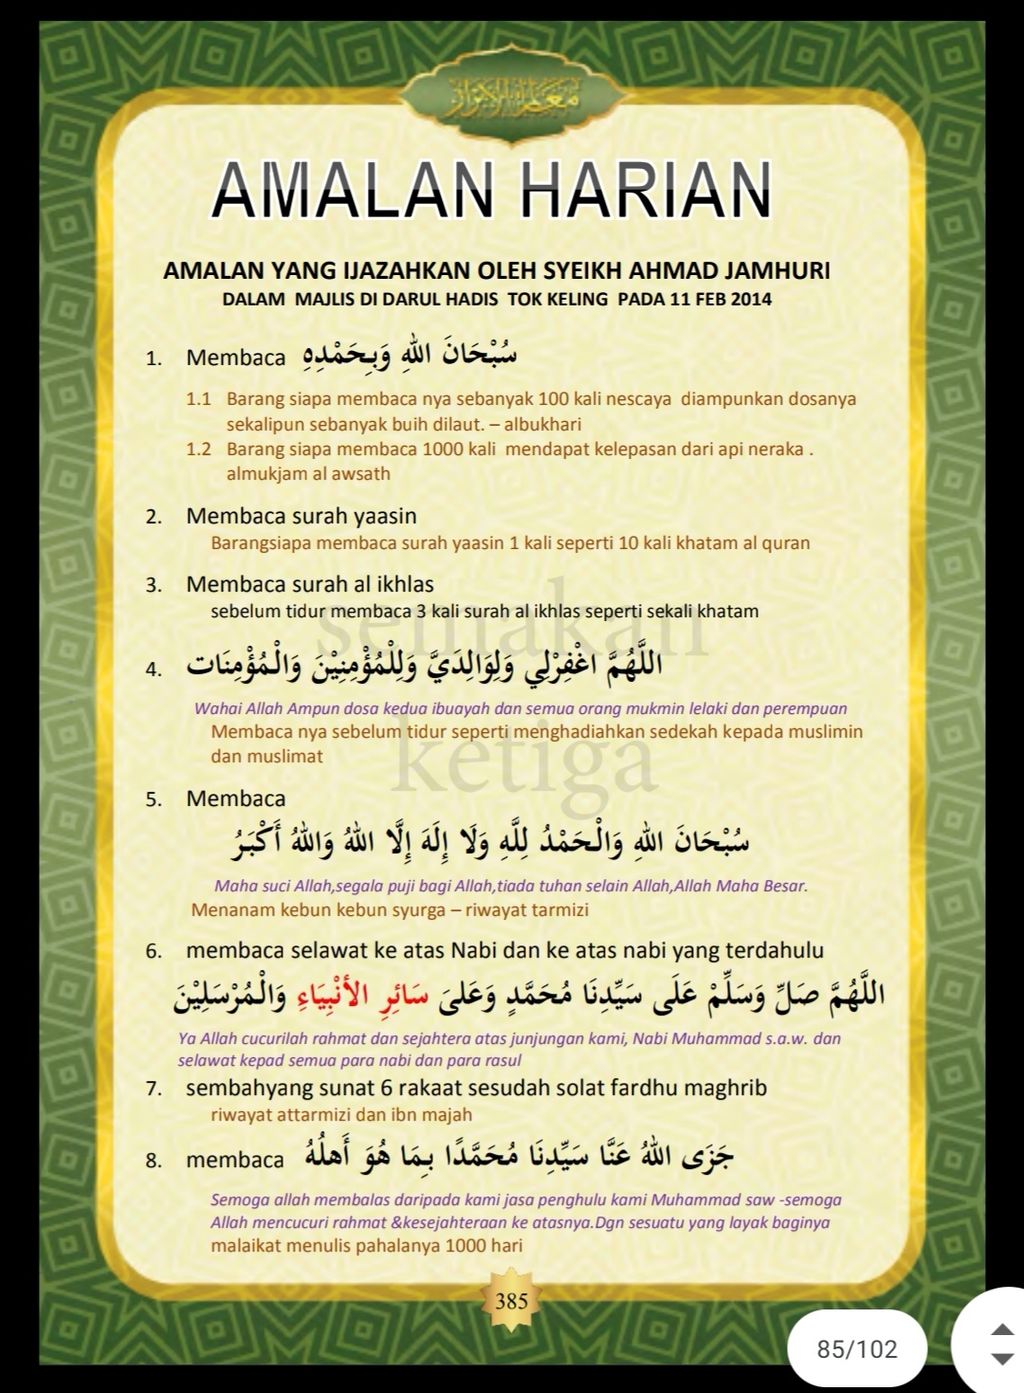 AMALAN HARIAN
AMALAN YANG IJAZAHKAN OLEH SYEIKH AHMAD JAMHURI
DALAM MAJLIS DI DARUL HADIS TOK KELING PADA 11 FEB 2014
1. Membaca سُبْحَانَ اللهِ وَبِحَمْدِهِ
1.1 Barang siapa membaca nya sebanyak 100 kali nescaya diampunkan dosanya
sekalipun sebanyak buih dilaut. – albukhari
1.2 Barang siapa membaca 1000 kali mendapat kelepasan dari api neraka .
almukjam al awsath
2. Membaca surah yaasin
Barangsiapa membaca surah yaasin 1 kali seperti 10 kali khatam al quran
3. Membaca surah al ikhlas
sebelum tidur membaca 3 kali surah al ikhlas seperti sekali khatam
semakan
4. اللَّهُمَّ اغْفِرْلِي وَلِوَالِدَيَّ وَلِلْمُؤْمِنِيْنَ وَالْمُؤْمِنَات
Wahai Allah Ampun dosa kedua ibuayah dan semua orang mukmin lelaki dan perempuan
Membaca nya sebelum tidur seperti menghadiahkan sedekah kepada muslimin
dan muslimat
ketiga
5. Membaca
سُبْحَانَ اللهِ وَالْحَمْدُ لِلَّهِ وَلَا إِلَهَ إِلَّا اللهُ وَاللهُ أَكْبَرُ
Maha suci Allah,segala puji bagi Allah,tiada tuhan selain Allah,Allah Maha Besar.
Menanam kebun kebun syurga – riwayat tarmizi
6. membaca selawat ke atas Nabi dan ke atas nabi yang terdahulu
اللَّهُمَّ صَلِّ وَسَلِّمْ عَلَى سَيِّدِنَا مُحَمَّدٍ وَعَلىَ سَائِرِ الأَنْبِيَاءِ وَالْمُرْسَلِيْنَ
Ya Allah cucurilah rahmat dan sejahtera atas junjungan kami, Nabi Muhammad s.a.w. dan
selawat kepad semua para nabi dan para rasul
7. sembahyang sunat 6 rakaat sesudah solat fardhu maghrib
riwayat attarmizi dan ibn majah
8. membaca جَزَى اللهُ عَنَّا سَيِّدِنَا مُحَمَّدًا بِمَا هُوَ أَهلُهُ
Semoga allah membalas daripada kami jasa penghulu kami Muhammad saw -semoga
Allah mencucuri rahmat &kesejahteraan ke atasnya.Dgn sesuatu yang layak baginya
malaikat menulis pahalanya 1000 hari
385
85/102